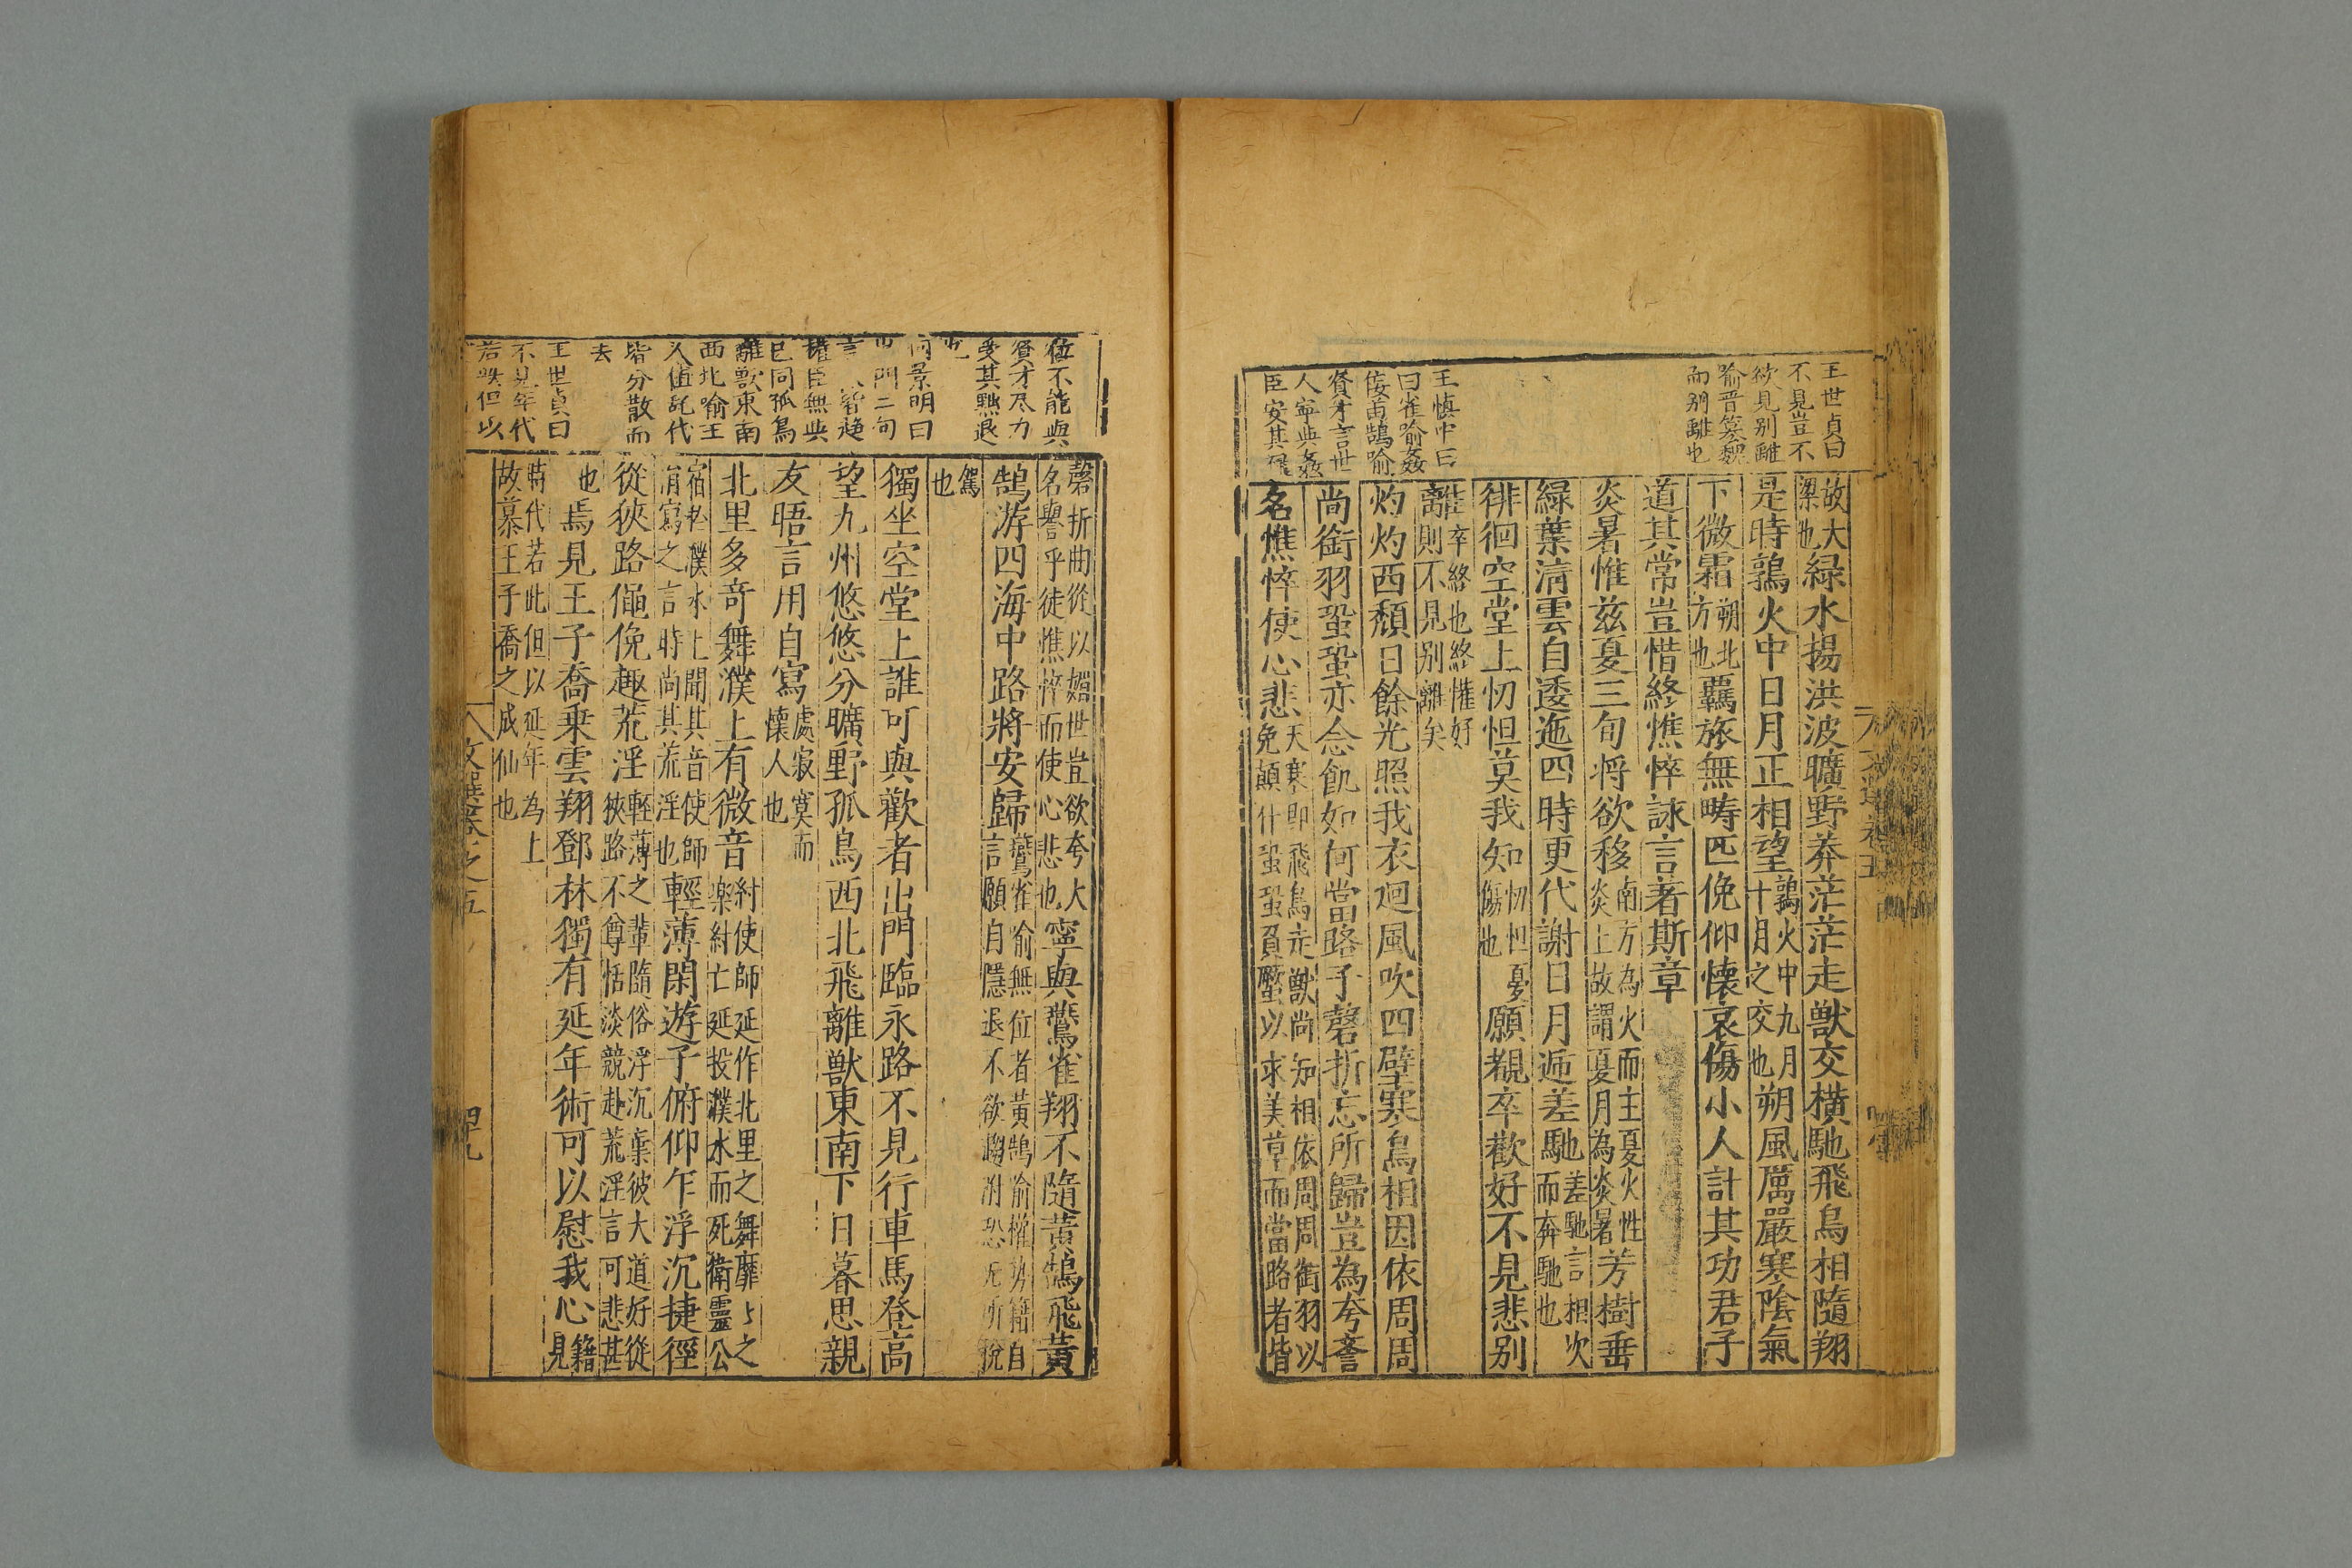 王世貞曰
不見豈不
欲見別離
喻晋簒魏
而别離也
王慎中曰
曰雀喻姦
佞黃鵠喻
賢才言世
人寧與姦
臣安其祿
故大
梁也
緑水揚洪波曠野莽茫茫走獸交橫馳飛鳥相隨翔
是時鶉火中日月正相望
鶉火中九月
十月之交也
朔風厲嚴寒陰氣
下微霜
朔北
方也
羈旅無疇匹俛仰懷哀傷小人計其功君子
道其常豈惜終憔悴詠言著斯章
炎暑惟兹夏三旬将欲移
南方為火而主夏火性
炎上故謂夏月為炎暑
芳樹垂
綠葉清雲自逶迤四時更代謝日月逓差馳
差馳言相次
而奔馳也
徘徊空堂上忉怛莫我知
忉怛憂
傷也
願覩卒歡好不見悲别
離
卒終也終懽好
則不見别離矣
灼灼西頹日餘光照我衣迴風吹四壁寒鳥相因依周周
尚銜羽蛩蛩亦念飢如何當路子磬折忘所歸豈為夸誉
名憔悴使心悲
天寒即飛鳥走獸尚知相依周周銜羽以
免顛仆蛩蛩負蟨以求美草而當路者皆
位不能與
賢才尽力
受其黜退
也
何景明曰
出門二句
皆趋
權臣無與
已同孤鳥
離獸東南
西北喻王
人值乱代
皆分散而
去
王世貞曰
不見年代
若此但以
磬折曲從以媚世豈欲夸大
名譽乎徒憔悴而使心悲也
寧與鷰雀翔不隨黃鵠飛黃
鵠游四海中路將安歸
鷰雀喻無位者黃鵠喻權势籍自
言願自隱退不欲趨附恐无所税
駕
也
獨坐空堂上誰可與歡者出門臨永路不見行車馬登高
望九州悠悠分曠野孤鳥西北飛離獸東南下日暮思親
友晤言用自寫
處寂寞而
懷人也
北里多竒舞濮上有微音
紂使師延作北里之舞靡〻之
楽紂亡延投濮水而死衛靈公
宿於濮水上聞其音使師
涓寫之言時尚其荒淫也
輕薄閑遊子俯仰乍浮沉捷徑
從狹路僶俛趣荒淫
輕薄之輩隨俗浮沉棄彼大道好從
狹路不尊恬淡競赴荒淫言可悲甚
也
焉見王子喬乗雲翔鄧林獨有延年術可以慰我心
籍
見
時代若此但以延年為上
故慕王子喬之成仙也
文選卷之五
四九